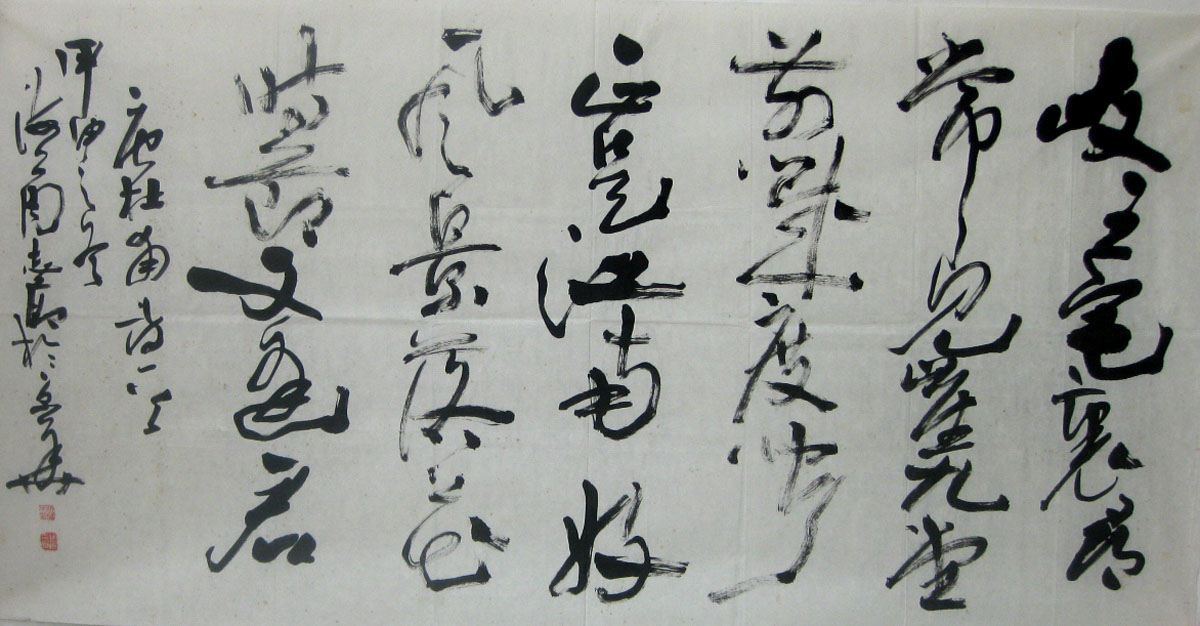 岐王宅裏尋
常見崔九堂
前幾度聞
正是江南好
風景落花
時節又逢君
唐杜甫詩一首
甲申之冬
海上周志